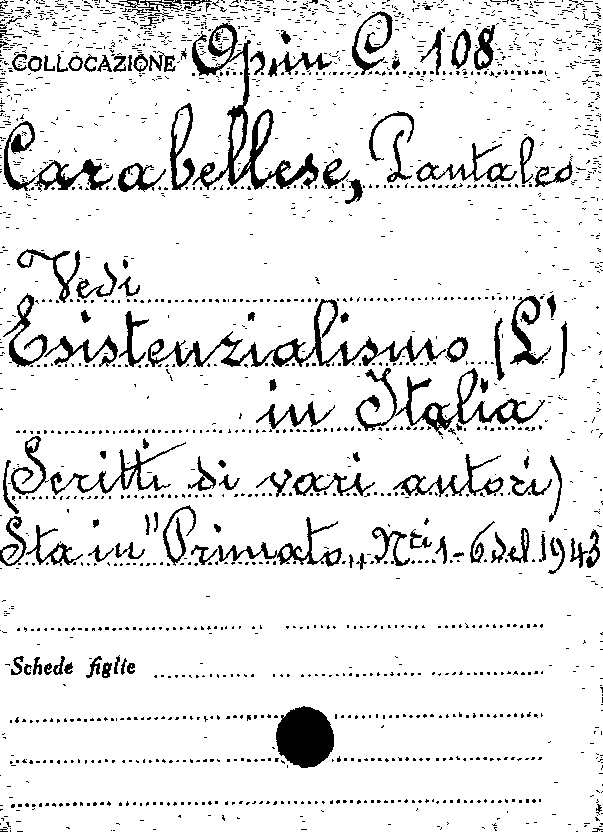 COLLOCAZIONE Opin C. 108
Carabellese, Pantaleo
Vedi
Esistenzialismo (L')
in Italia
(Scritti di vari autori)
Sta in "Primato„ Nri 1-6 del 1943
Schede figlie